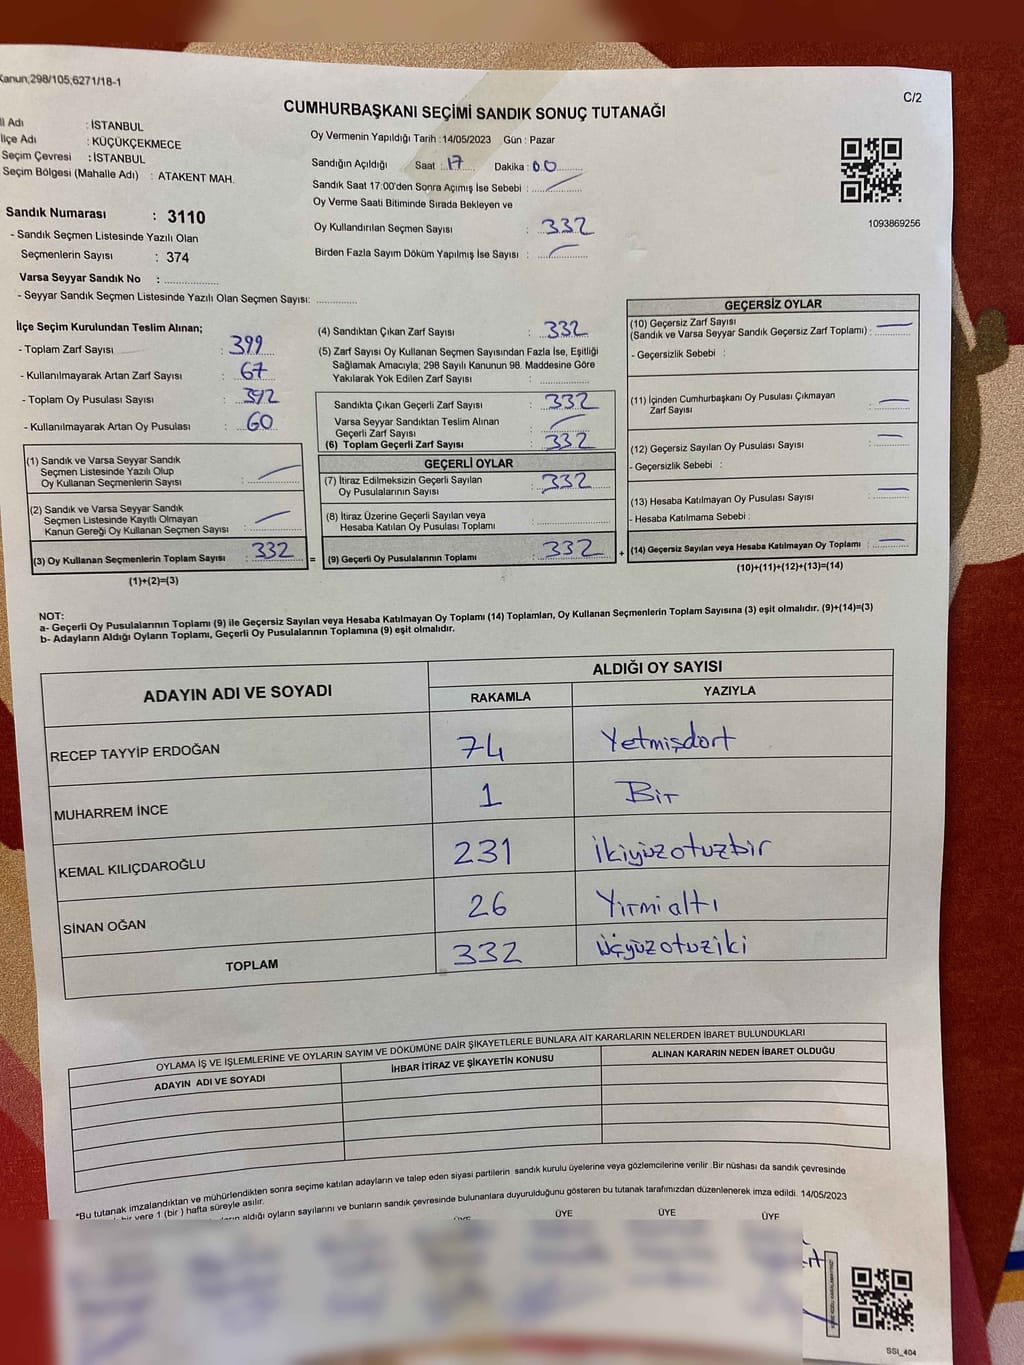 Kanun;298/105;6271/18-1
C/2
CUMHURBAŞKANI SEÇİMİ SANDIK SONUÇ TUTANAĞI
İl Adı : İSTANBUL
İlçe Adı : KÜÇÜKÇEKMECE
Seçim Çevresi : İSTANBUL
Seçim Bölgesi (Mahalle Adı) : ATAKENT MAH.
Sandık Numarası : 3110
- Sandık Seçmen Listesinde Yazılı Olan
Seçmenlerin Sayısı : 374
Varsa Seyyar Sandık No :
- Seyyar Sandık Seçmen Listesinde Yazılı Olan Seçmen Sayısı:
Oy Vermenin Yapıldığı Tarih :14/05/2023 Gün : Pazar
Sandığın Açıldığı Saat : 17 Dakika : 00
Sandık Saat 17:00'den Sonra Açımış İse Sebebi :
Oy Verme Saati Bitiminde Sırada Bekleyen ve
Oy Kullandırılan Seçmen Sayısı : 332
Birden Fazla Sayım Döküm Yapılmış İse Sayısı :
1093869256
İlçe Seçim Kurulundan Teslim Alınan;
- Toplam Zarf Sayısı : 399
- Kullanılmayarak Artan Zarf Sayısı : 67
- Toplam Oy Pusulası Sayısı : 392
- Kullanılmayarak Artan Oy Pusulası : 60
(1) Sandık ve Varsa Seyyar Sandık
Seçmen Listesinde Yazılı Olup
Oy Kullanan Seçmenlerin Sayısı :
(2) Sandık ve Varsa Seyyar Sandık
Seçmen Listesinde Kayıtlı Olmayan
Kanun Gereği Oy Kullanan Seçmen Sayısı :
(3) Oy Kullanan Seçmenlerin Toplam Sayısı : 332 =
(1)+(2)=(3)
(4) Sandıktan Çıkan Zarf Sayısı : 332
(5) Zarf Sayısı Oy Kullanan Seçmen Sayısından Fazla İse, Eşitliği
Sağlamak Amacıyla; 298 Sayılı Kanunun 98. Maddesine Göre
Yakılarak Yok Edilen Zarf Sayısı :
Sandıkta Çıkan Geçerli Zarf Sayısı : 332
Varsa Seyyar Sandıktan Teslim Alınan
Geçerli Zarf Sayısı :
(6) Toplam Geçerli Zarf Sayısı : 332
GEÇERLİ OYLAR
(7) İtiraz Edilmeksizin Geçerli Sayılan
Oy Pusulalarının Sayısı : 332
(8) İtiraz Üzerine Geçerli Sayılan veya
Hesaba Katılan Oy Pusulası Toplamı :
(9) Geçerli Oy Pusulalarının Toplamı : 332 +
GEÇERSİZ OYLAR
(10) Geçersiz Zarf Sayısı
(Sandık ve Varsa Seyyar Sandık Geçersiz Zarf Toplamı) :
- Geçersizlik Sebebi :
(11) İçinden Cumhurbaşkanı Oy Pusulası Çıkmayan
Zarf Sayısı :
(12) Geçersiz Sayılan Oy Pusulası Sayısı :
- Geçersizlik Sebebi :
(13) Hesaba Katılmayan Oy Pusulası Sayısı :
- Hesaba Katılmama Sebebi :
(14) Geçersiz Sayılan veya Hesaba Katılmayan Oy Toplamı :
(10)+(11)+(12)+(13)=(14)
NOT:
a- Geçerli Oy Pusulalarının Toplamı (9) ile Geçersiz Sayılan veya Hesaba Katılmayan Oy Toplamı (14) Toplamları, Oy Kullanan Seçmenlerin Toplam Sayısına (3) eşit olmalıdır. (9)+(14)=(3)
b- Adayların Aldığı Oyların Toplamı, Geçerli Oy Pusulalarının Toplamına (9) eşit olmalıdır.
ADAYIN ADI VE SOYADI ALDIĞI OY SAYISI
RAKAMLA YAZIYLA
RECEP TAYYİP ERDOĞAN 74 Yetmişdört
MUHARREM İNCE 1 Bir
KEMAL KILIÇDAROĞLU 231 İkiyüzotuzbir
SİNAN OĞAN 26 Yirmialtı
TOPLAM 332 üçyüzotuziki
OYLAMA İŞ VE İŞLEMLERİNE VE OYLARIN SAYIM VE DÖKÜMÜNE DAİR ŞİKAYETLERLE BUNLARA AİT KARARLARIN NELERDEN İBARET BULUNDUKLARI
ADAYIN ADI VE SOYADI İHBAR İTİRAZ VE ŞİKAYETİN KONUSU ALINAN KARARIN NEDEN İBARET OLDUĞU
*Bu tutanak imzalandıktan ve mühürlendikten sonra seçime katılan adayların ve talep eden siyasi partilerin sandık kurulu üyelerine veya gözlemcilerine verilir .Bir nüshası da sandık çevresinde
bir yere 1 (bir ) hafta süreyle asılır.
aldığı oyların sayılarını ve bunların sandık çevresinde bulunanlara duyurulduğunu gösteren bu tutanak tarafımızdan düzenlenerek imza edildi. 14/05/2023
ÜYE ÜYE ÜYE ÜYE
SSI_404